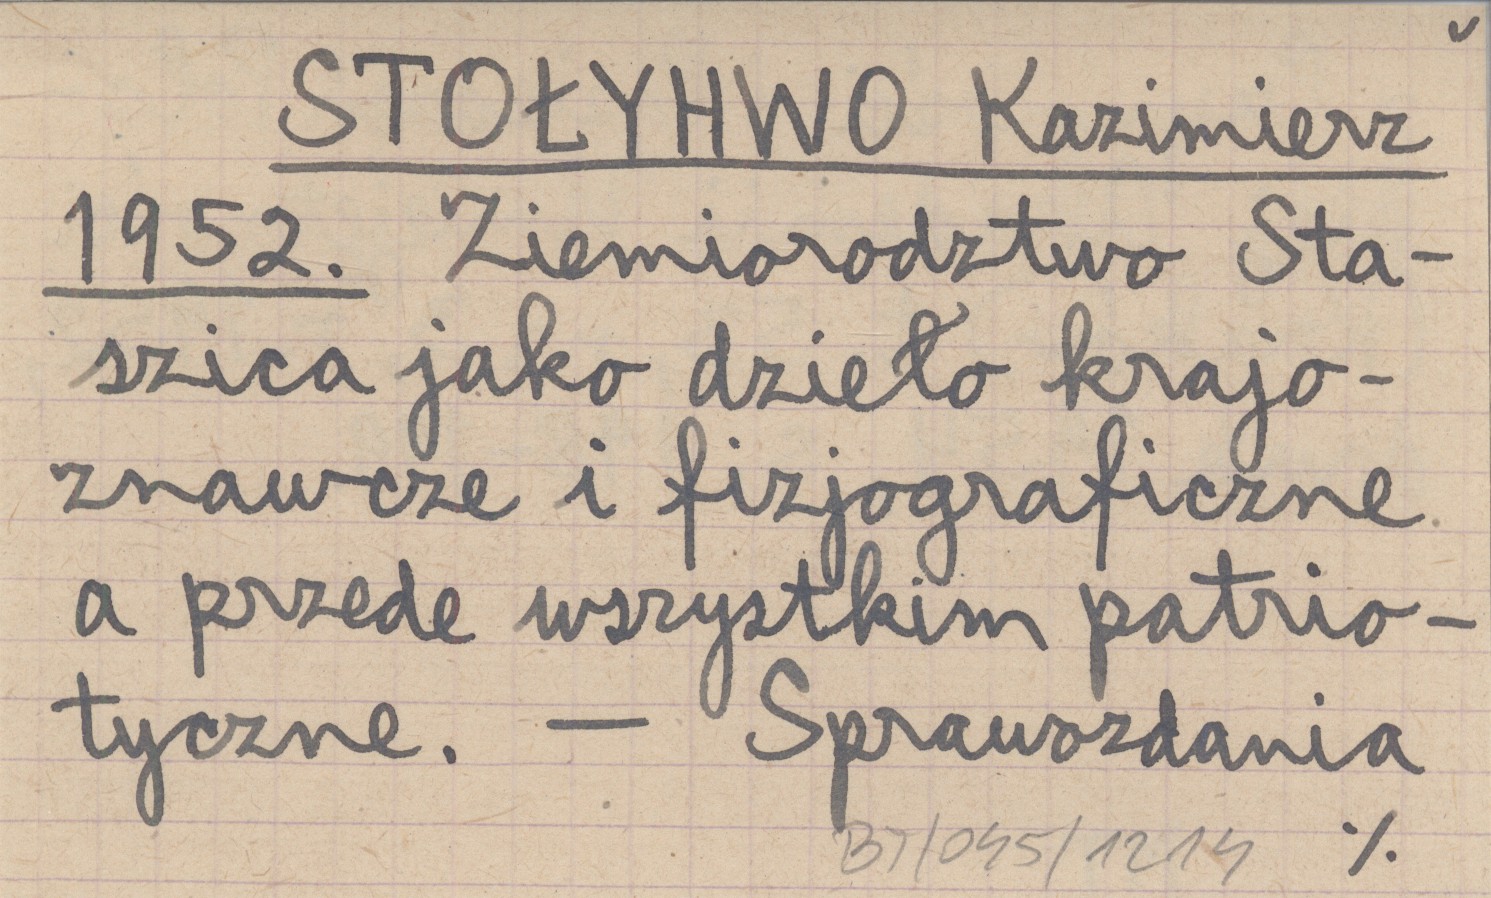 STOŁYHWO Kazimierz
1952. Ziemiorodztwo Sta-
szica jako dzieło krajo-
znawcze i fizjograficzne
a przede wszystkim patrio-
tyczne. — Sprawozdania
BT/045/1214 ./.